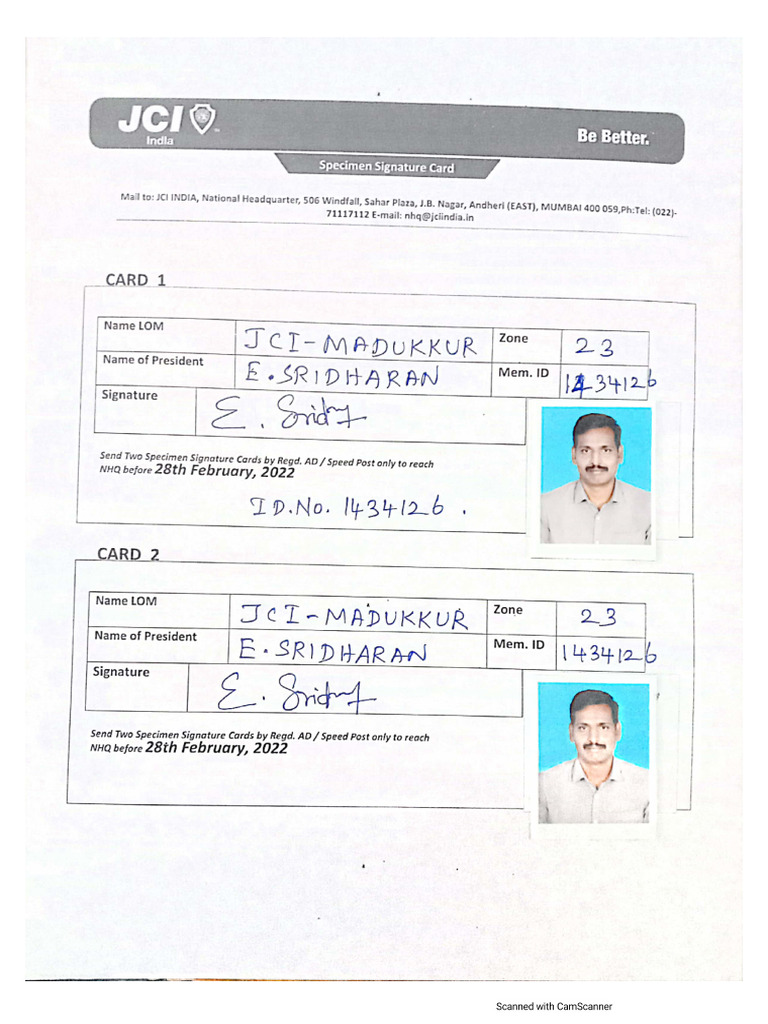 JCI
India
Be Better.
Specimen Signature Card
Mail to: JCI INDIA, National Headquarter, 506 Windfall, Sahar Plaza, J.B. Nagar, Andheri (EAST), MUMBAI 400 059,Ph:Tel: (022)-
71117112 E-mail: nhq@jciindia.in
CARD 1
Name LOM JCI-MADUKKUR Zone 23
Name of President E.SRIDHARAN Mem. ID 1434126
Signature E. Sridh
Send Two Specimen Signature Cards by Regd. AD / Speed Post only to reach
NHQ before 28th February, 2022
ID.No. 1434126 .
CARD 2
Name LOM JCI-MADUKKUR Zone 23
Name of President E.SRIDHARAN Mem. ID 1434126
Signature E. Sridh
Send Two Specimen Signature Cards by Regd. AD / Speed Post only to reach
NHQ before 28th February, 2022
Scanned with CamScanner